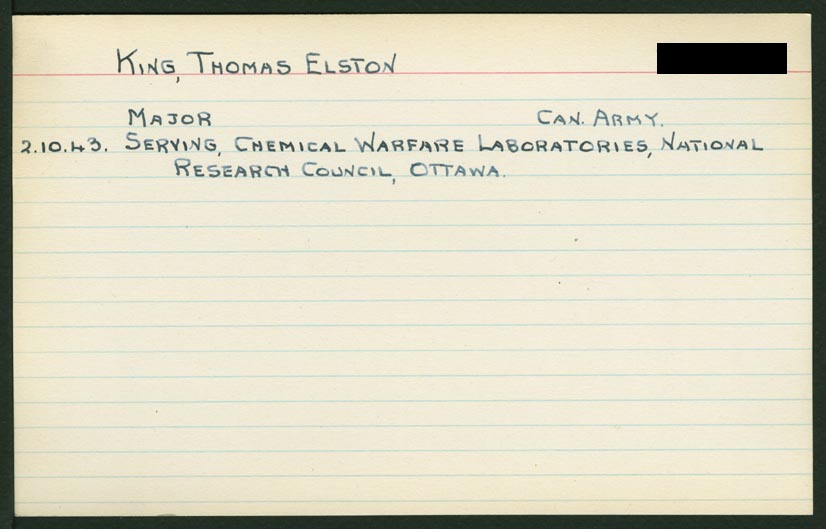 KING, THOMAS ELSTON
MAJOR CAN. ARMY.
2.10.43. SERVING, CHEMICAL WARFARE LABORATORIES, NATIONAL
RESEARCH COUNCIL, OTTAWA.